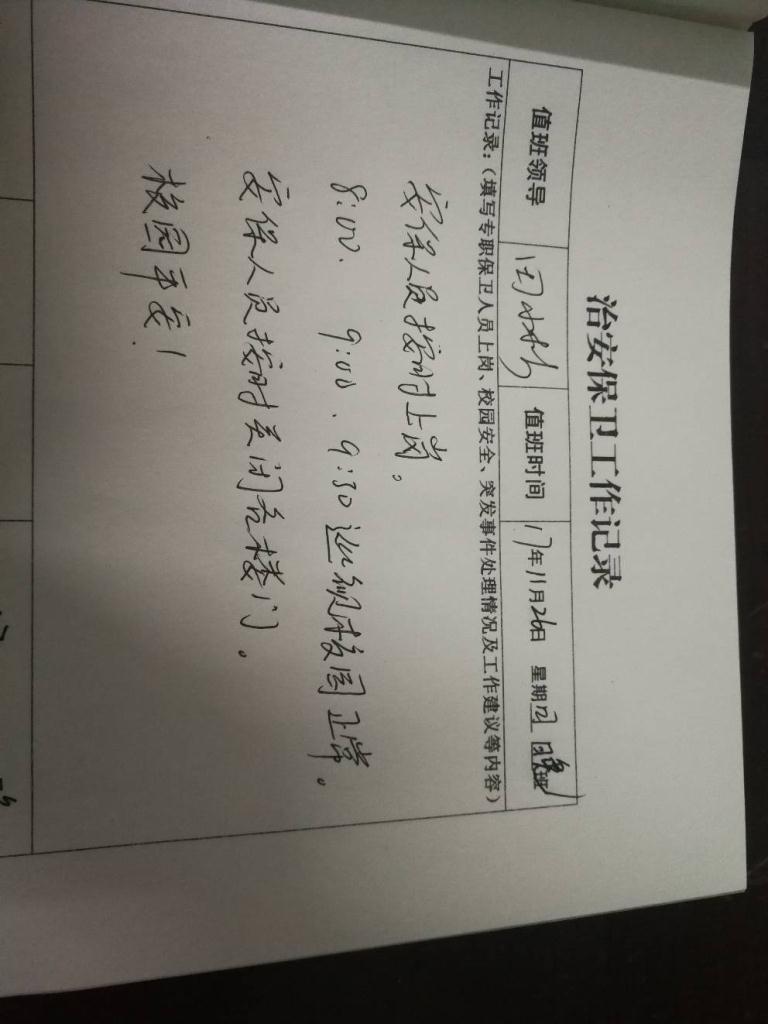 治安保卫工作记录
值班领导 田 值班时间 17年11月26日 星期日 晚班
工作记录:(填写专职保卫人员上岗、校园安全、突发事件处理情况及工作建议等内容)
安保人员按时上岗。
8:00、9:00、9:30巡视校园正常。
安保人员按时关闭各楼门。
校园平安!